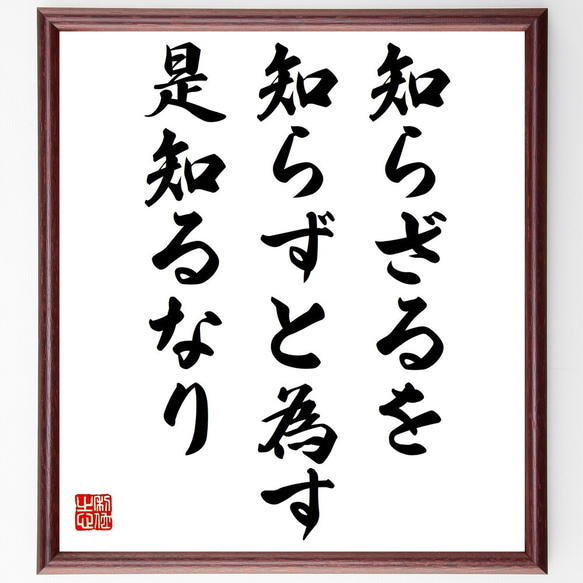 知らざるを
知らずと為す
是知るなり